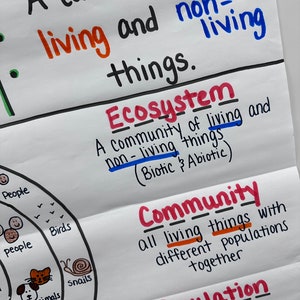 living and non-
living
things.
Ecosystem
A community of living and
non-living things
(Biotic & Abiotic)
Community
all living things with
different populations
together
People
Birds
People
Snails